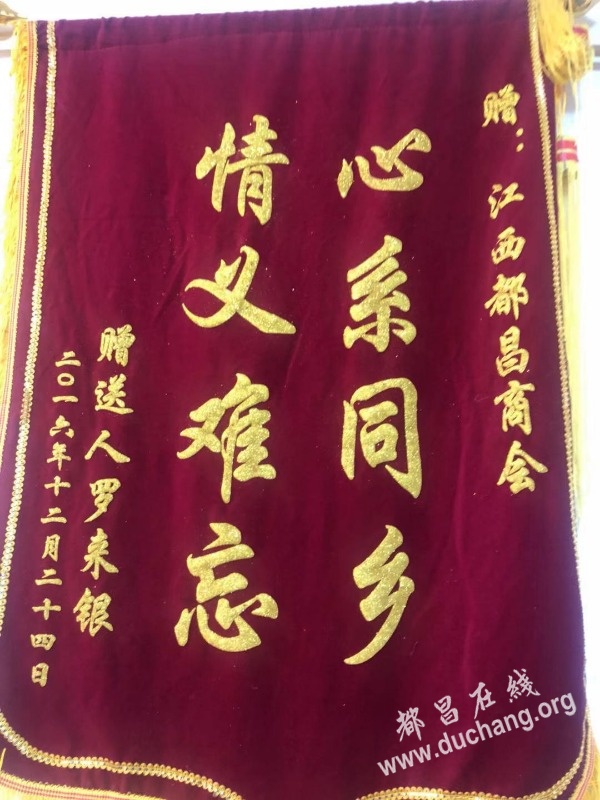 赠：江西都昌商会
心系同乡
情义难忘
赠送人罗来银
二〇一六年十二月二十四日
都昌在线
www.duchang.org